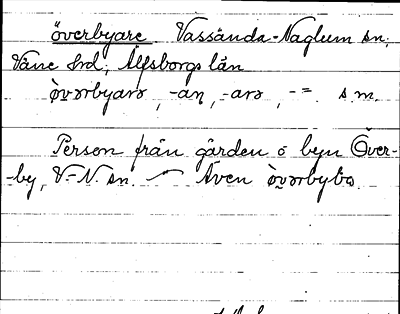 överbyare Vassända-Naglum sn,
Väne hrd, Älfsborgs län
ö̀vərbyarə, -aṇ, -arə, -=. s.m.
Person från gården o byn Över-
by, V.-N. sn. — Även ö̀vərbybo.